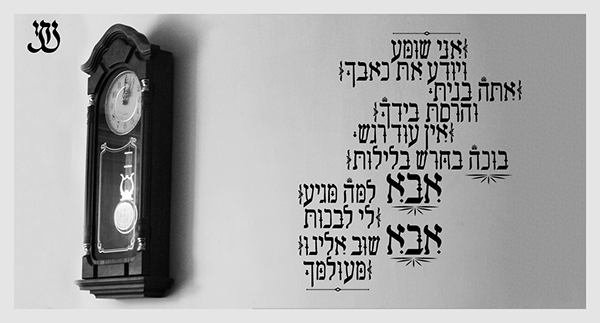 אני שומע
ויודע את כאבך
אתה בנית
והרסת בידך
אין עוד רגש
בוכה בחרש בלילות
אבא למה מגיע
לי לבכות
אבא שוב אלינו
מעולמך